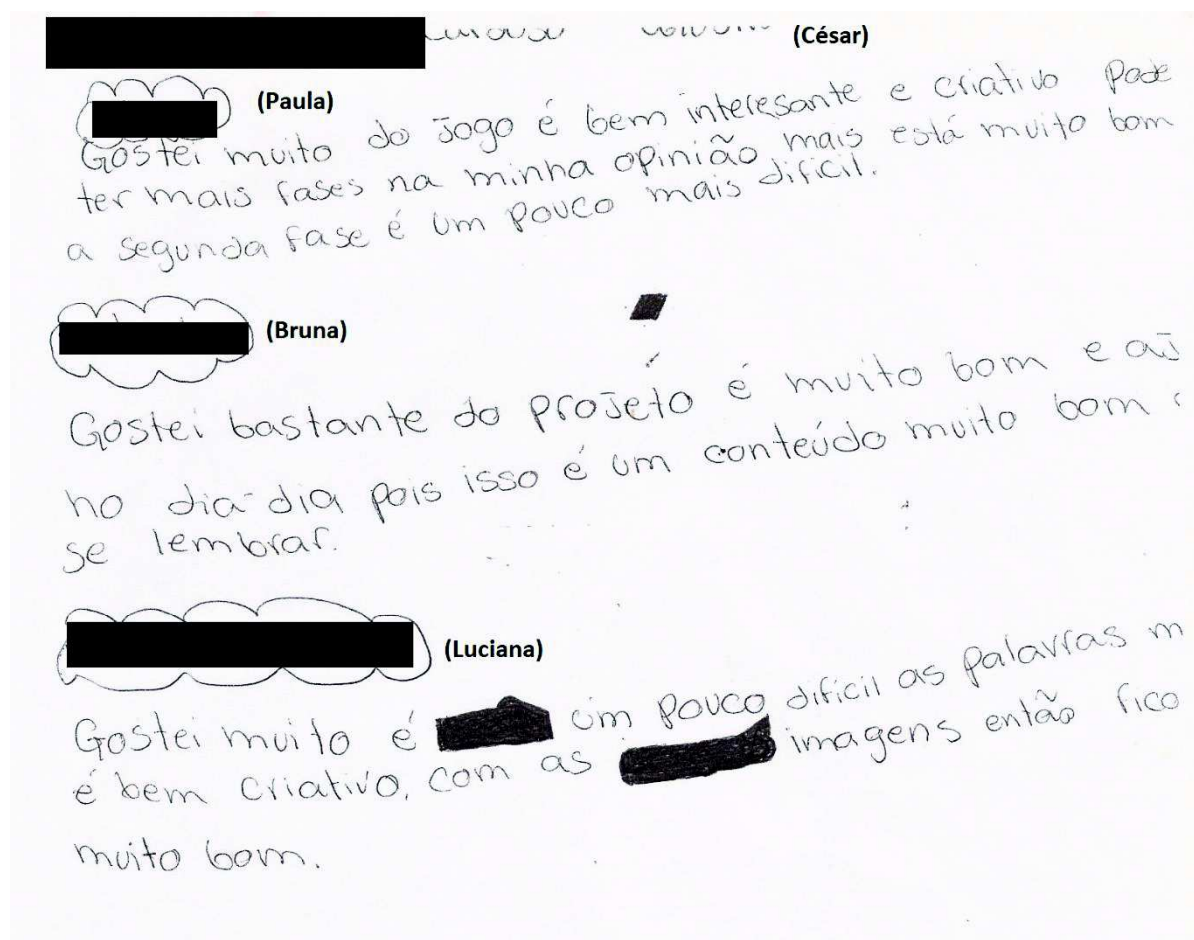 (César)
(Paula)
Gostei muito do Jogo é bem interesante e criativo Pode
ter mais fases na minha opinião mais está muito bom
a segunda fase é um pouco mais dificil.
(Bruna)
Gostei bastante do projeto é muito bom e
no dia-dia pois isso é um conteúdo muito bom
se lembrar.
(Luciana)
Gostei muito é um pouco dificil as palavras
é bem criativo, com as imagens então fico
muito bom.